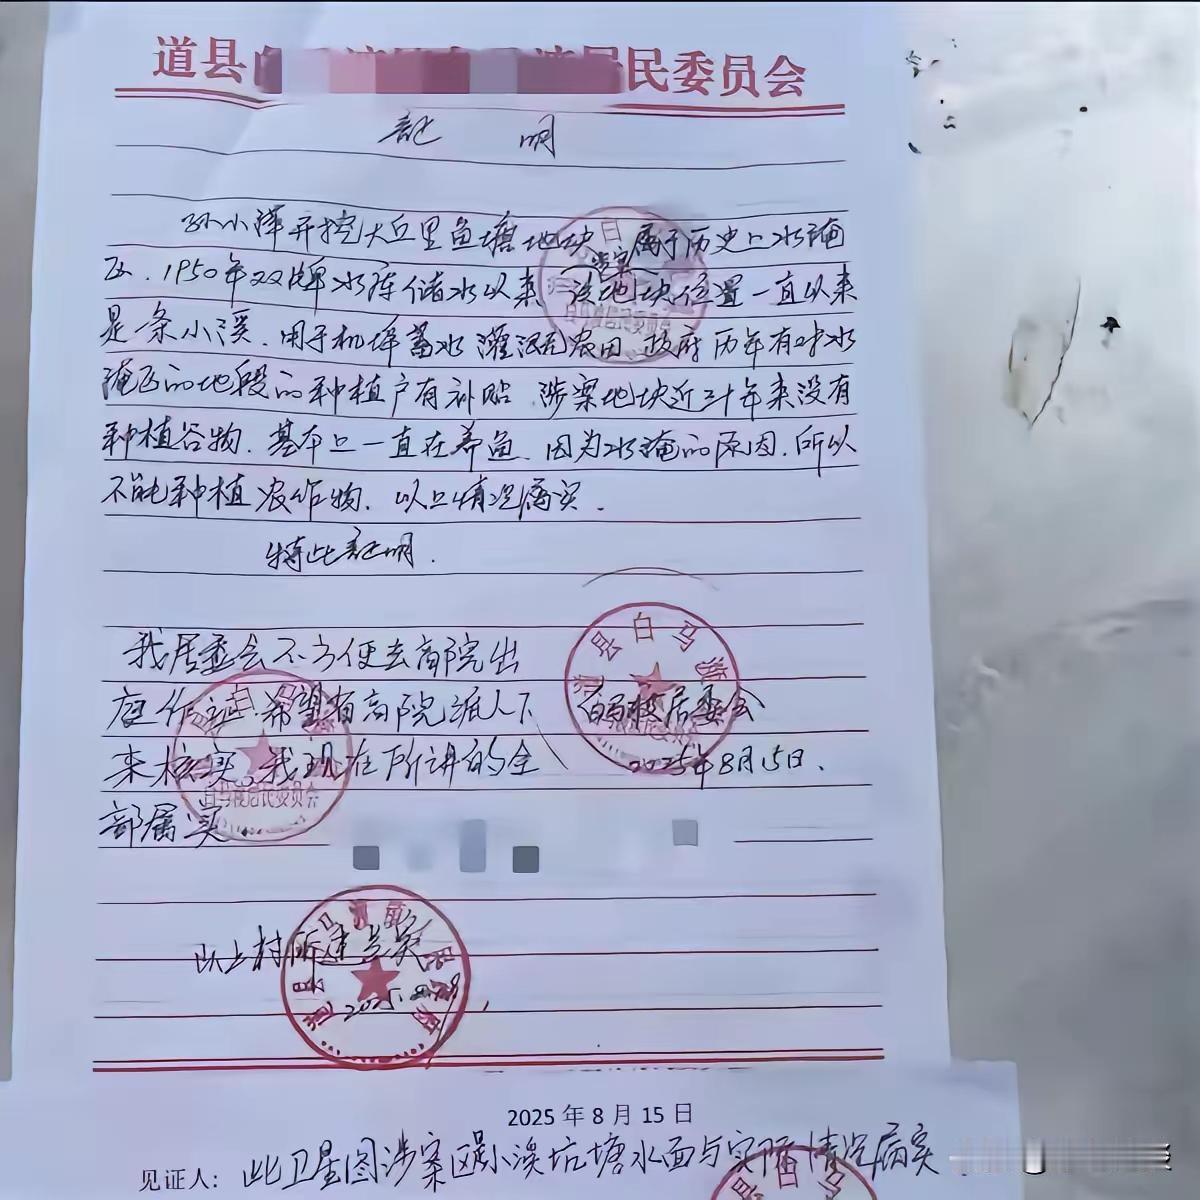 道县 居民委员会
证 明
孙小萍开挖大丘里鱼塘地块,属于历史上水淹
区.1950年双牌水库储水以来 涉案该地块位置一直以来
是条小溪.用于机埠蓄水灌溉农田.政府历年有对水
淹区的地段的种植户有补贴.涉案地块近三十年来没有
种植谷物.基本上一直在养鱼.因为水淹的原因.所以
不能种植农作物.以上情况属实.
特此证明.
我居委会不方便去高院出
庭作证.希望省高院派人下
来核实,我现在所讲的全
部属实.
道县白马渡
白马渡居委会
2025年8月15日.
白马渡居民委员会
以上村所述是实
2025.
2025年8月15日
见证人: 此卫星图涉案区小溪坑塘水面与实际情况属实